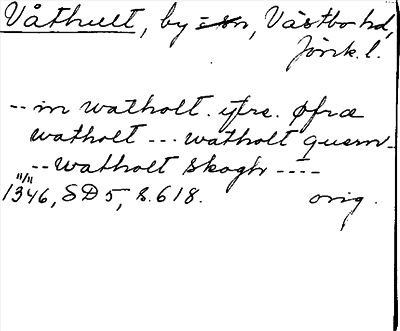 Våthult, by, Västbo hd,
Jönk. l.
-- in watholt. yfre. øfræ
watholt --- watholt quærn-
-- watholt skogh ----
11/11
1346, SD 5, s. 618. orig.